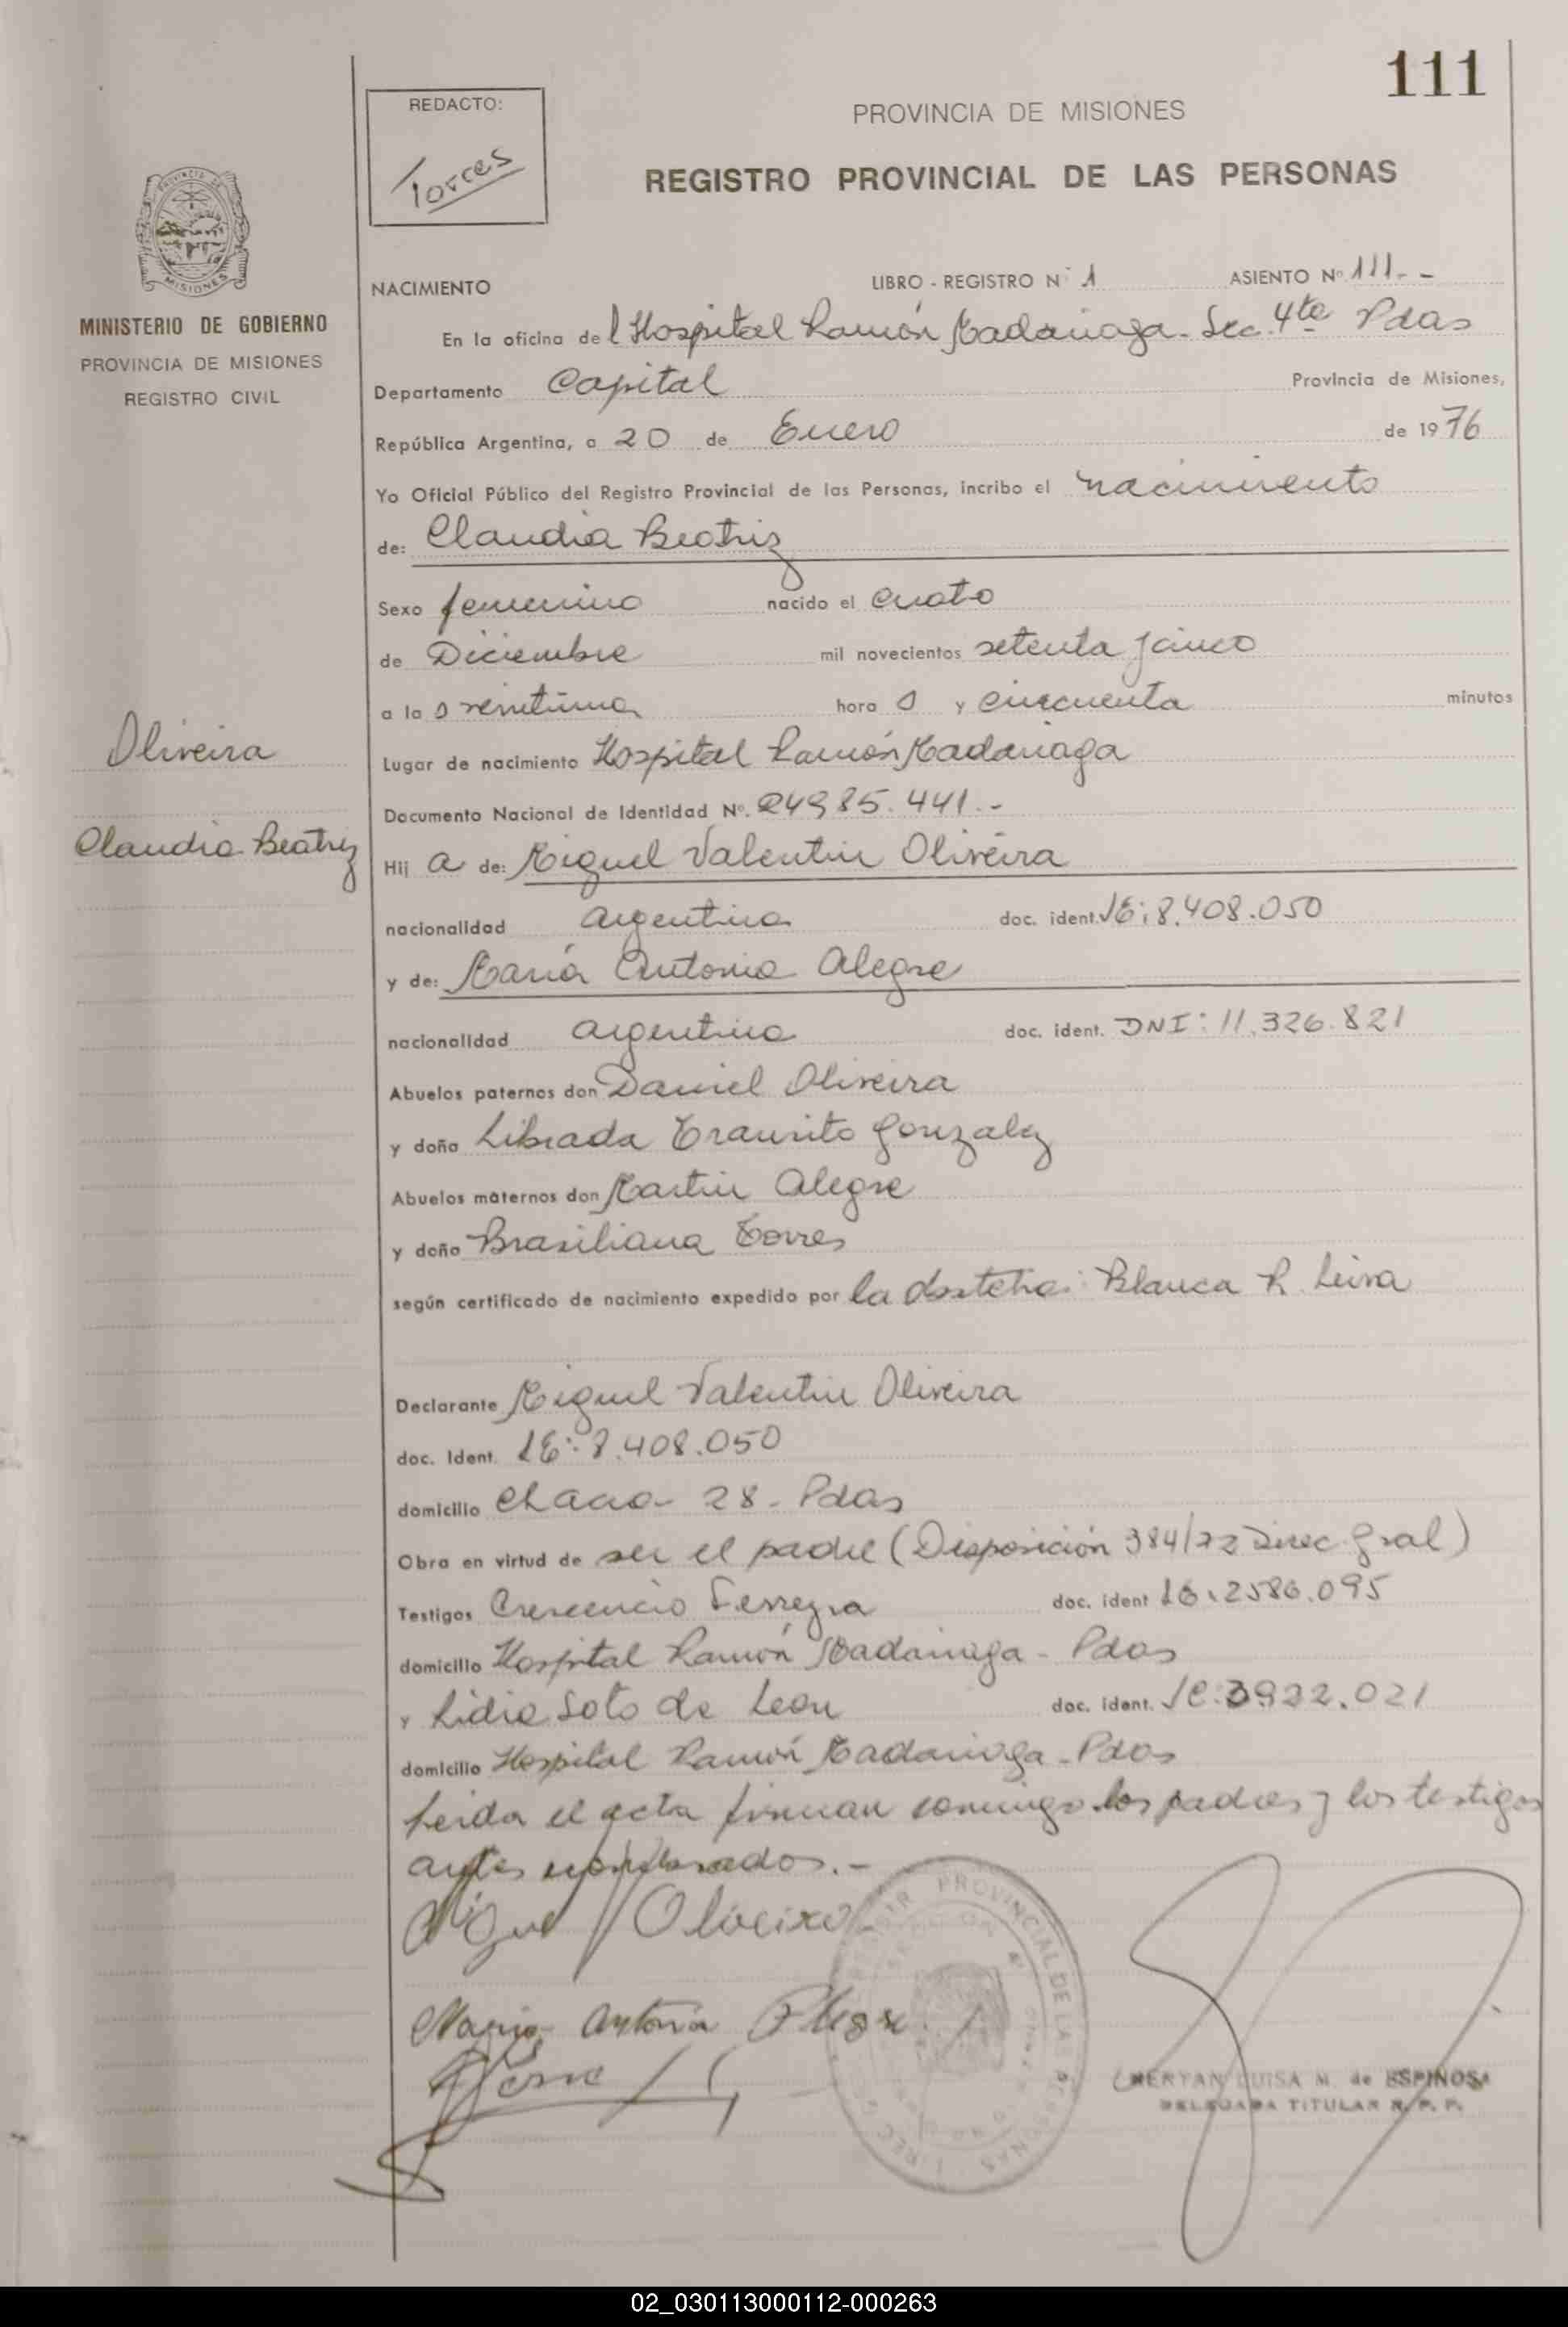 111
REDACTO:
Torres
PROVINCIA DE MISIONES
REGISTRO PROVINCIAL DE LAS PERSONAS
PROVINCIA DE
MISIONES
MINISTERIO DE GOBIERNO
PROVINCIA DE MISIONES
REGISTRO CIVIL
NACIMIENTO LIBRO - REGISTRO Nº 1 ASIENTO Nº 111.-
En la oficina del Hospital Ramón Madariaga - Sec. 4ta Pdas
Departamento Capital Provincia de Misiones,
República Argentina, a 20 de Enero de 1976
Yo Oficial Público del Registro Provincial de las Personas, incribo el nacimiento
de: Claudia Beatriz
Sexo femenino nacido el cuatro
de Diciembre mil novecientos setenta y cinco
a las veintiuna hora s y cincuenta minutos
Oliveira
Lugar de nacimiento Hospital Ramón Madariaga
Documento Nacional de Identidad Nº. 24985.441.-
Claudia Beatriz
Hij a de: Miguel Valentin Oliveira
nacionalidad argentina doc. ident. LE: 8.408.050
y de: María Antonia Alegre
nacionalidad argentina doc. ident. DNI: 11.326.821
Abuelos paternos don Daniel Oliveira
y doña Librada Transito Gonzalez
Abuelos maternos don Martin Alegre
y doña Brasiliana Torres
según certificado de nacimiento expedido por la obstetra: Blanca R. Leiva
Declarante Miguel Valentin Oliveira
doc. Ident. LE: 8.408.050
domicilio Chaco - 28 - Pdas
Obra en virtud de ser el padre (Disposición 384/72 Direc. Gral)
Testigos Crescencio Ferreyra doc. ident LE: 2586.095
domicilio Hospital Ramón Madariaga - Pdas
y Lidia Soto de Leon doc. ident. LC: 3922.021
domicilio Hospital Ramón Madariaga - Pdas
Leida el acta firman conmigo los padres y los testigos
antes nombrados.-
Miguel V Oliveira
Maria Antonia Alegre
REGISTR PROVINCIAL DE LAS PERSONAS
LUISA M. de ESPINOSA
DELEGADA TITULAR R. P. P.
02_030113000112-000263